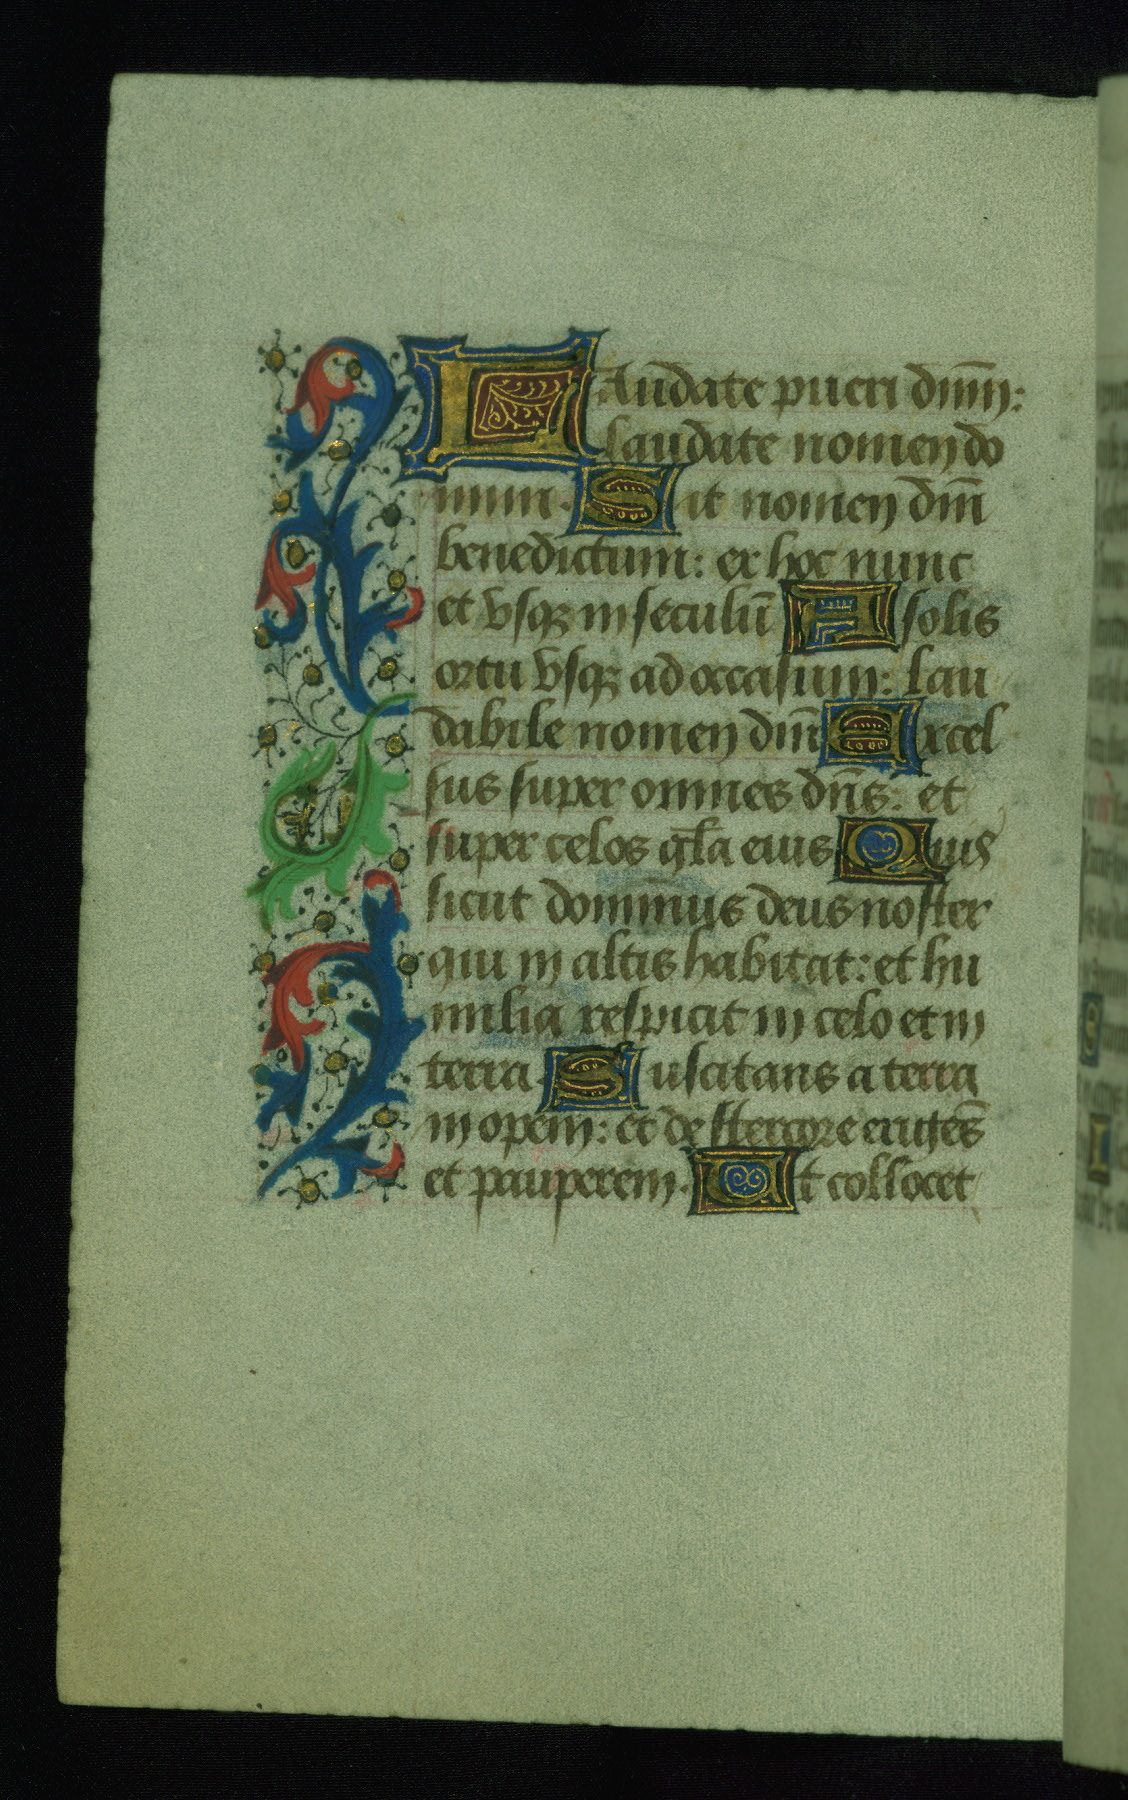 Laudate pueri dm̄n:
laudate nomen do
mini. Sit nomen dn̄i
benedictum: ex hoc nunc
et vsqꝫ in seculū A solis
ortu vsqꝫ ad occasum: lau
dabile nomen dn̄i Excel
sus super omnes dn̄s: et
super celos gl̄a eius Quis
sicut dominus deus noster
qui in altis habitat: et hu
milia respicit in celo et in
terra. Suscitans a terra
inopem: et de stercore erigēs
et pauperem. Ut collocet